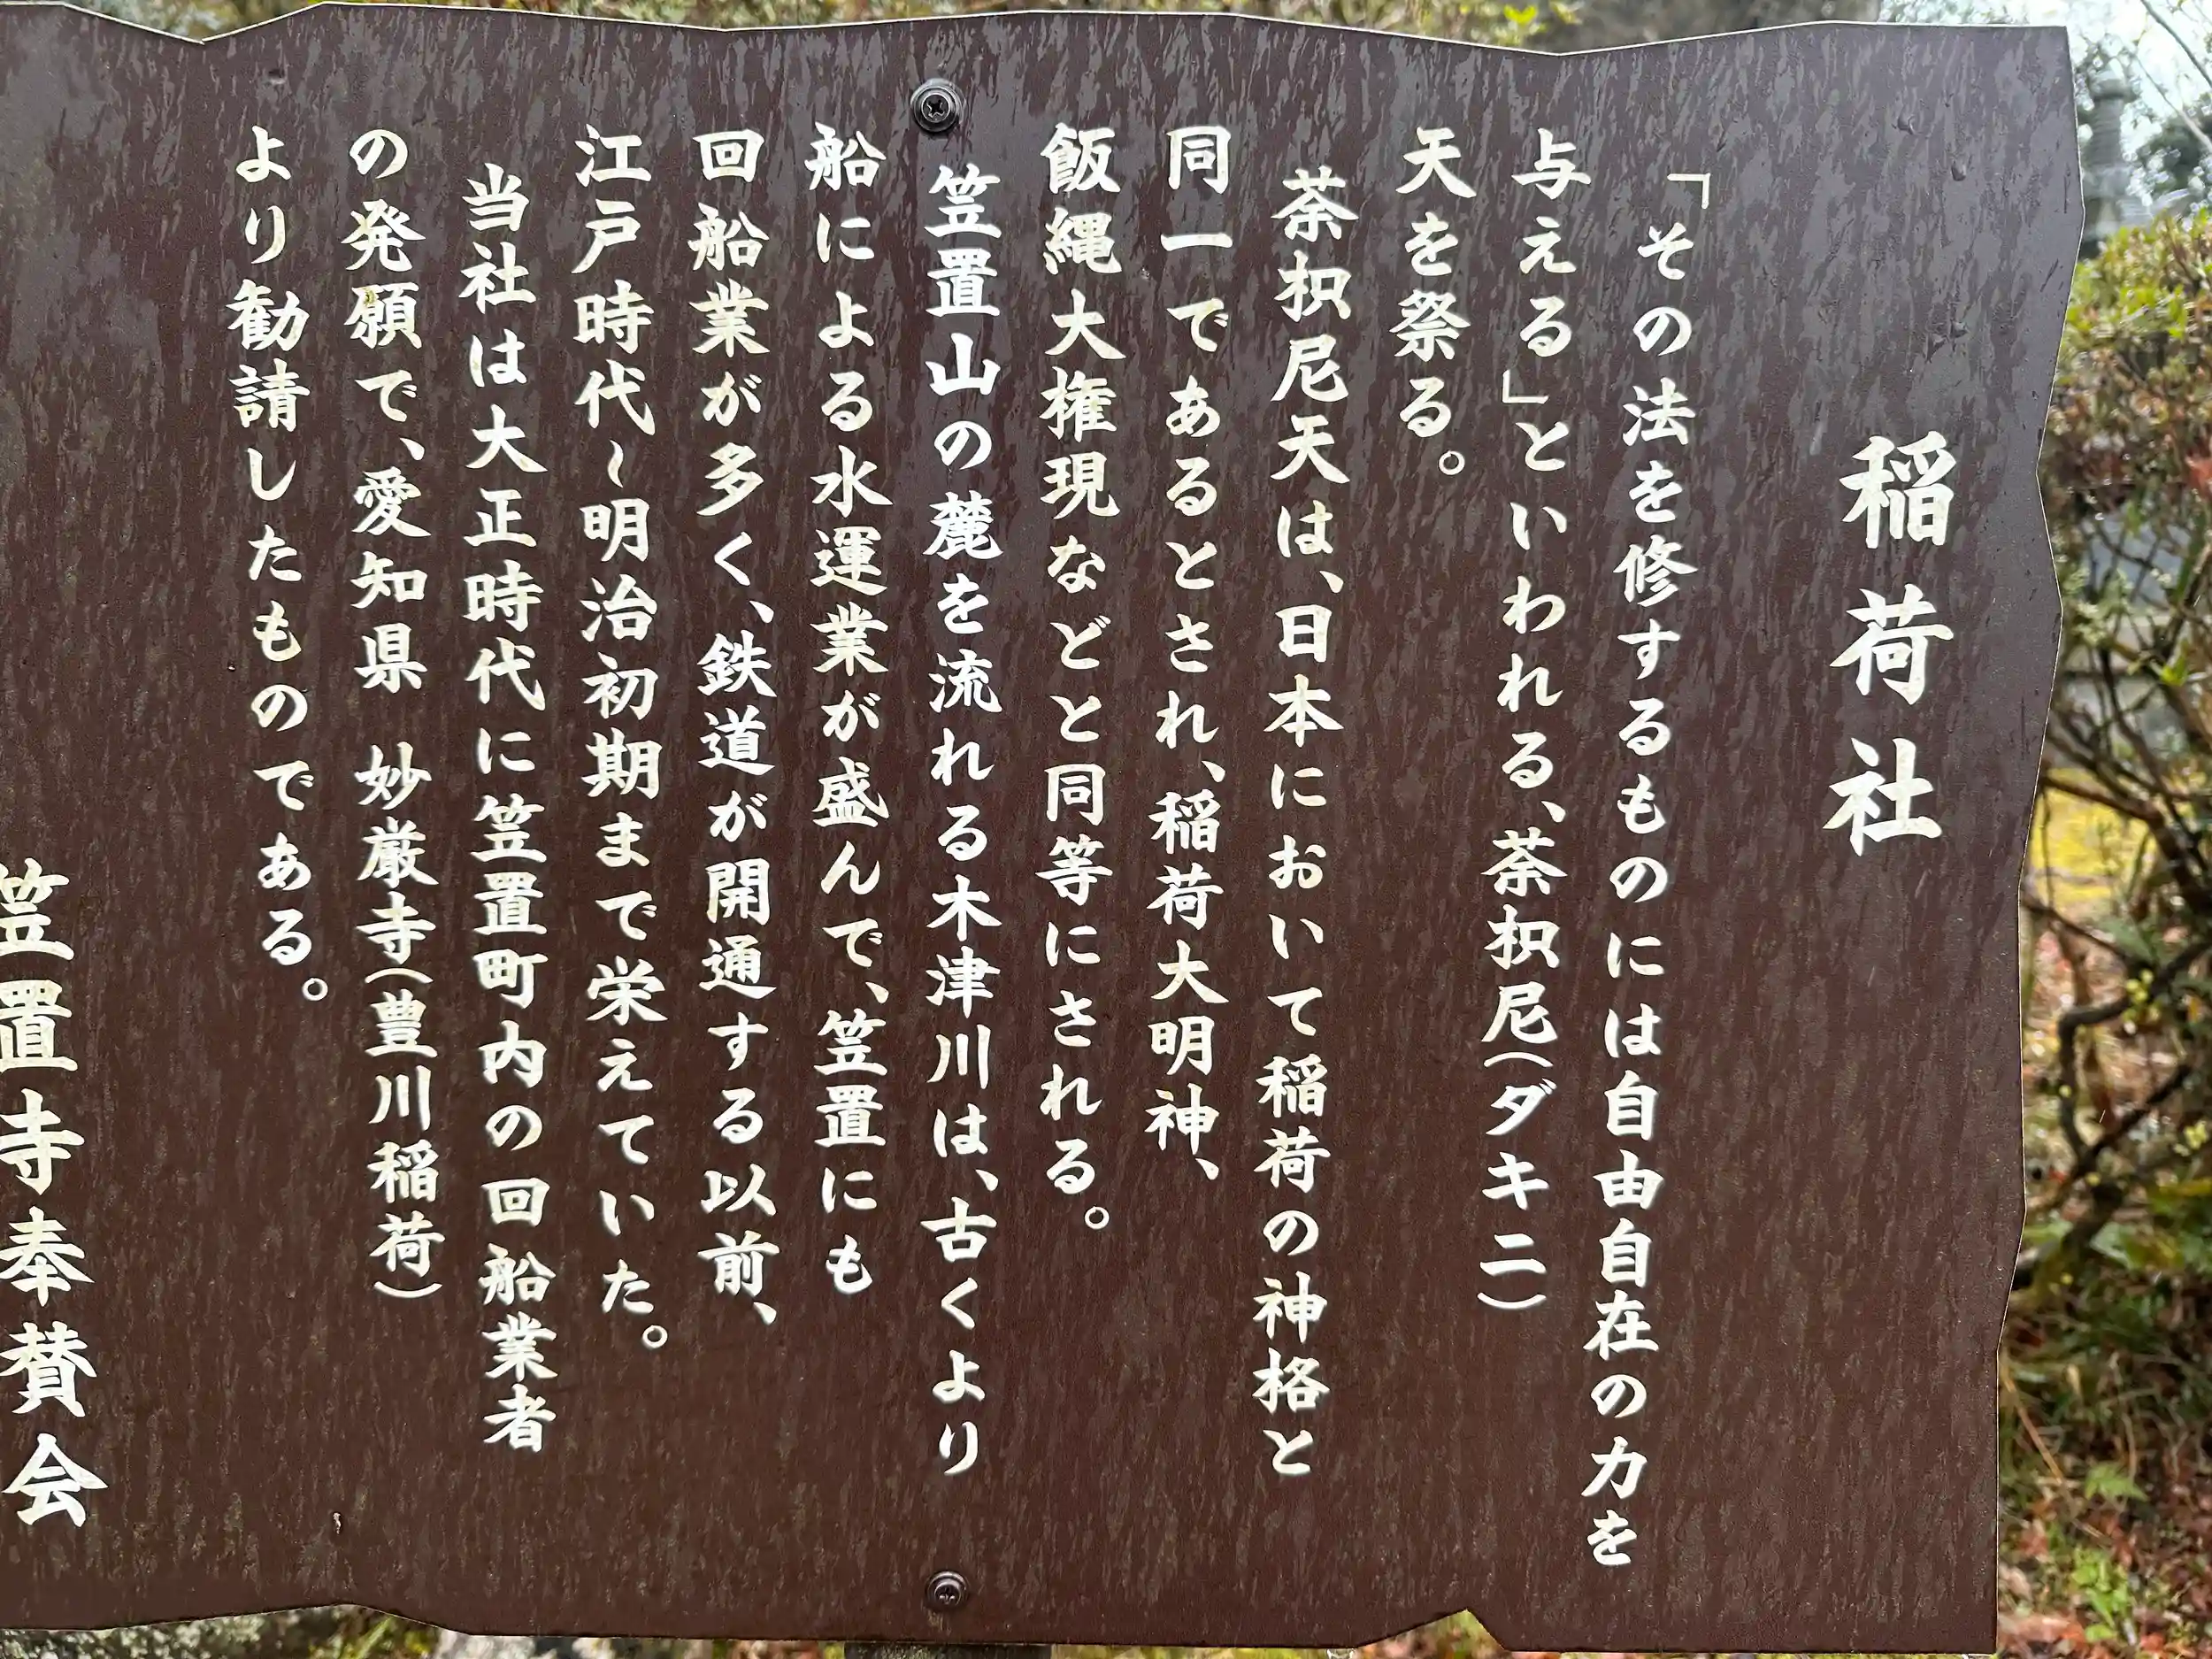 稲荷社
「その法を修するものには自由自在の力を
与える」といわれる、荼枳尼(ダキニ)
天を祭る。
荼枳尼天は、日本において稲荷の神格と
同一であるとされ、稲荷大明神、
飯縄大権現などと同等にされる。
笠置山の麓を流れる木津川は、古くより
船による水運業が盛んで、笠置にも
回船業が多く、鉄道が開通する以前、
江戸時代〜明治初期まで栄えていた。
当社は大正時代に笠置町内の回船業者
の発願で、愛知県 妙厳寺(豊川稲荷)
より勧請したものである。
笠置寺奉賛会